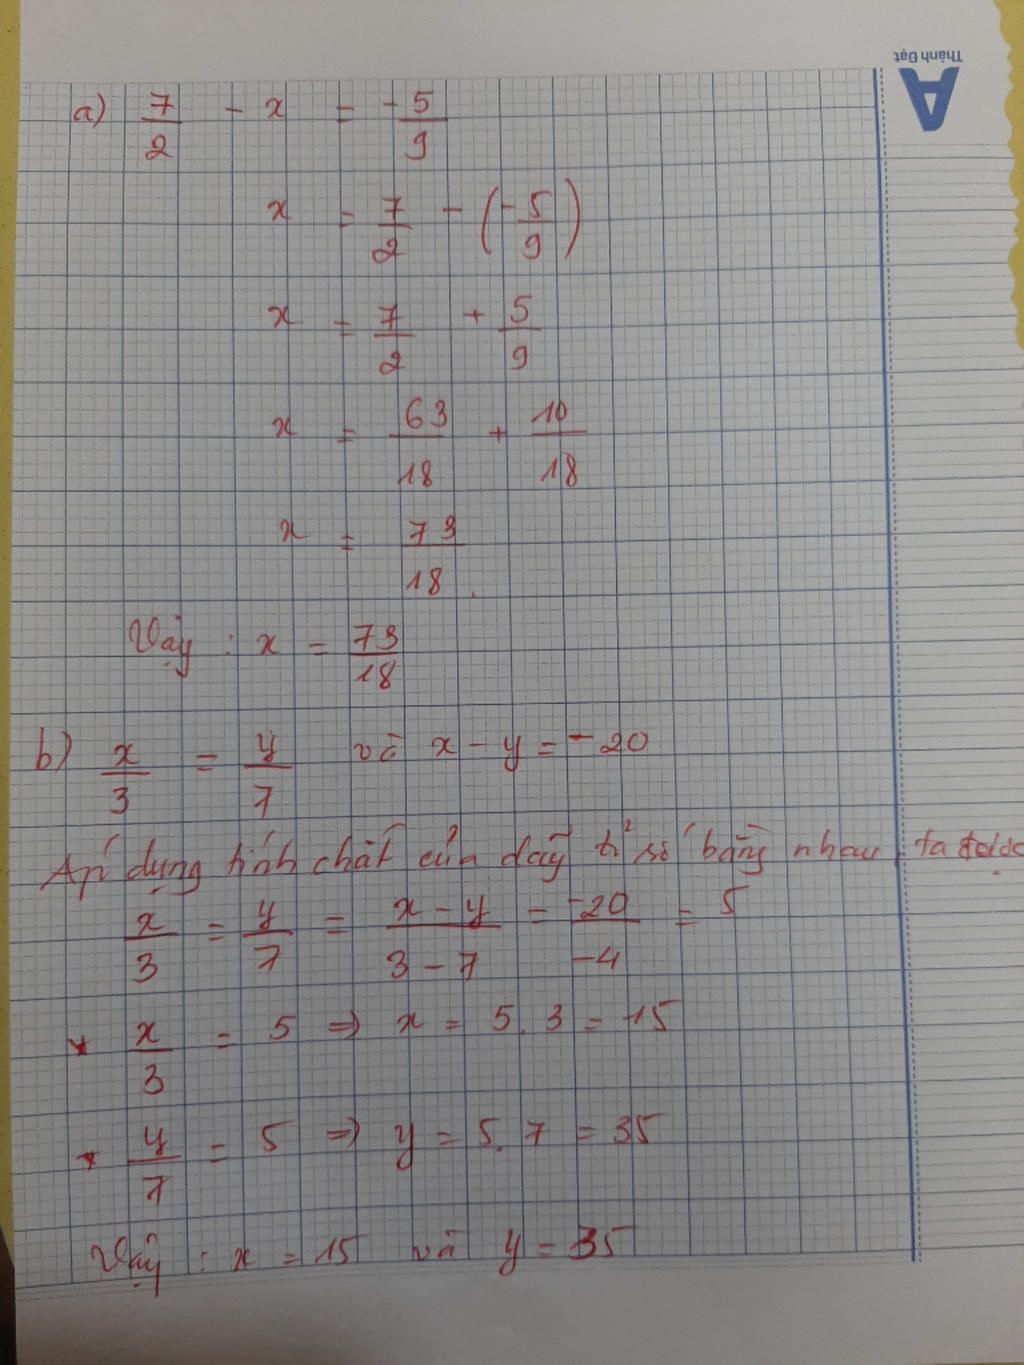 Thành Đạt
A
a) 7/2 - x = -5/9
x = 7/2 - (-5/9)
x = 7/2 + 5/9
x = 63/18 + 10/18
x = 73/18.
Vậy : x = 73/18
b) x/3 = y/7 và x - y = -20
Áp dụng tính chất của dãy tỉ số bằng nhau, ta được
x/3 = y/7 = x - y/3 - 7 = -20/-4 = 5
* x/3 = 5 => x = 5.3 = 15
* y/7 = 5 => y = 5.7 = 35
Vậy : x = 15 và y = 35